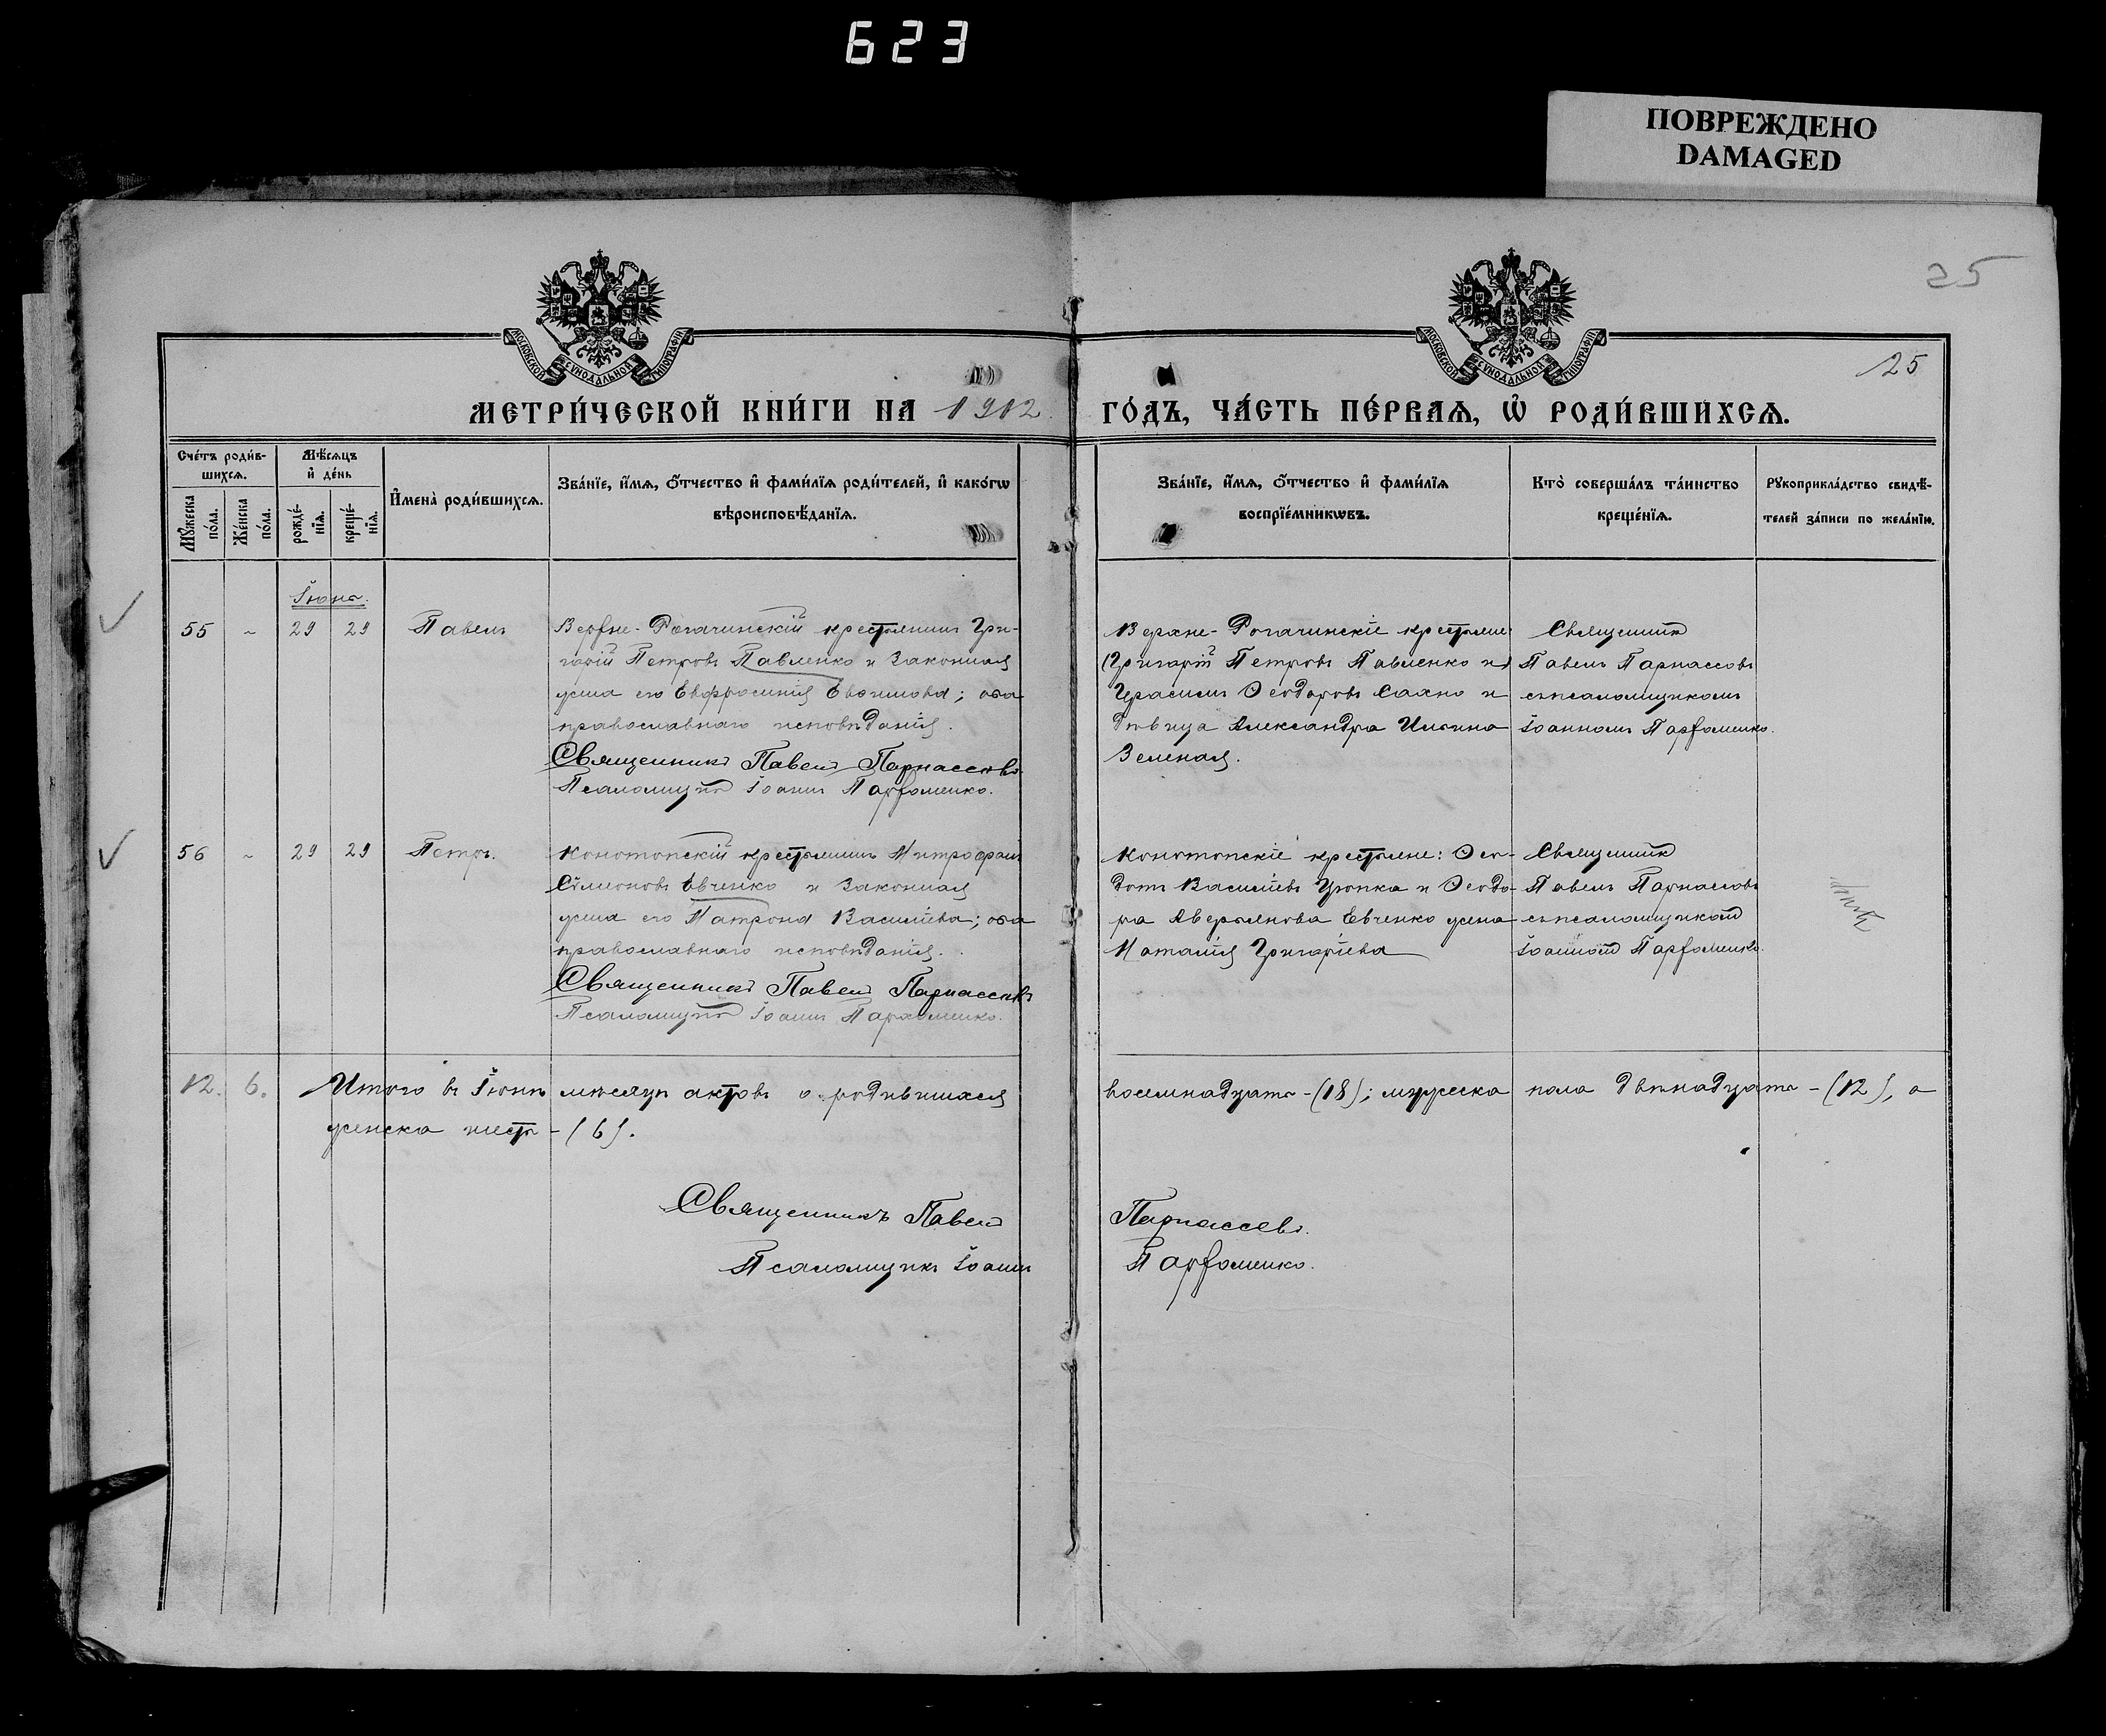 623
ПОВРЕЖДЕНО
DAMAGED
25
25
МОСКОВСКОЙ СѴНОДАЛЬНОЙ ТИПОГРАФІИ
МОСКОВСКОЙ СѴНОДАЛЬНОЙ ТИПОГРАФІИ
МЕТРИ́ЧЕСКОЙ КНИ́ГИ НА 1912 ГО́ДЪ, ЧА́СТЬ ПЕ́РВАѦ, Ѡ РОДИ́ВШИХСѦ.
Сче́тъ роди́в-
шихсѧ.
Мꙋ́жеска по́ла.
Же́нска по́ла.
Мѣ́сѧцъ
и де́нь
рожде́-
нїѧ.
креще́-
нїѧ.
Имена̀ роди́вшихсѧ.
Зва́нїе, и́мѧ, о́тчество и фами́лїѧ роди́телей, и како́гѡ
вѣроисповѣ́данїѧ.
Зва́нїе, и́мѧ, о́тчество и фами́лїѧ
воспрїе́мникѡвъ.
Кто̀ соверша́лъ та́инство
креще́нїѧ.
Рꙋкоприкла́дство свидѣ́-
телей за́писи по жела́нїю.
Іюнь.
55 ~ 29 29 Павелъ
Верхне-Рогачинскій крестьянинъ Гри-
горій Петровъ Павленко и законная
жена его Евфросинія Евѳимова; оба
православнаго исповѣданія.
Священникъ Павелъ Парнассовъ.
Псаломщикъ Іоаннъ Пархоменко.
Верхне-Рогачинскіе крестьяне:
Григорій Петровъ Павленко и
Герасимъ Ѳеодоровъ Сахно и
дѣвица Александра Ильина
Зеленая.
Священникъ
Павелъ Парнассовъ
съ псаломщикомъ
Іоанномъ Пархоменко.
56 ~ 29 29 Петръ.
Конотопскій крестьянинъ Митрофанъ
Сѵмеоновъ Евченко и законная
жена его Матрона Василіева; оба
православнаго исповѣданія.
Священникъ Павелъ Парнассовъ
Псаломщикъ Іоаннъ Пархоменко.
Конотопскіе крестьяне: Ѳео-
дотъ Василіевъ и Ѳеодо-
ра Аверьянова Евченко жена
Наталія Григоріева
Священникъ
Павелъ Парнассовъ
съ псаломщикомъ
Іоанномъ Пархоменко.
12. 6. Итого въ Іюнѣ мѣсяцѣ актовъ о родившихся восемнадцать-(18); мужеска пола двѣнадцать-(12), а
женска шесть-(6).
Священникъ Павелъ Парнассовъ.
Псаломщикъ Іоаннъ Пархоменко.